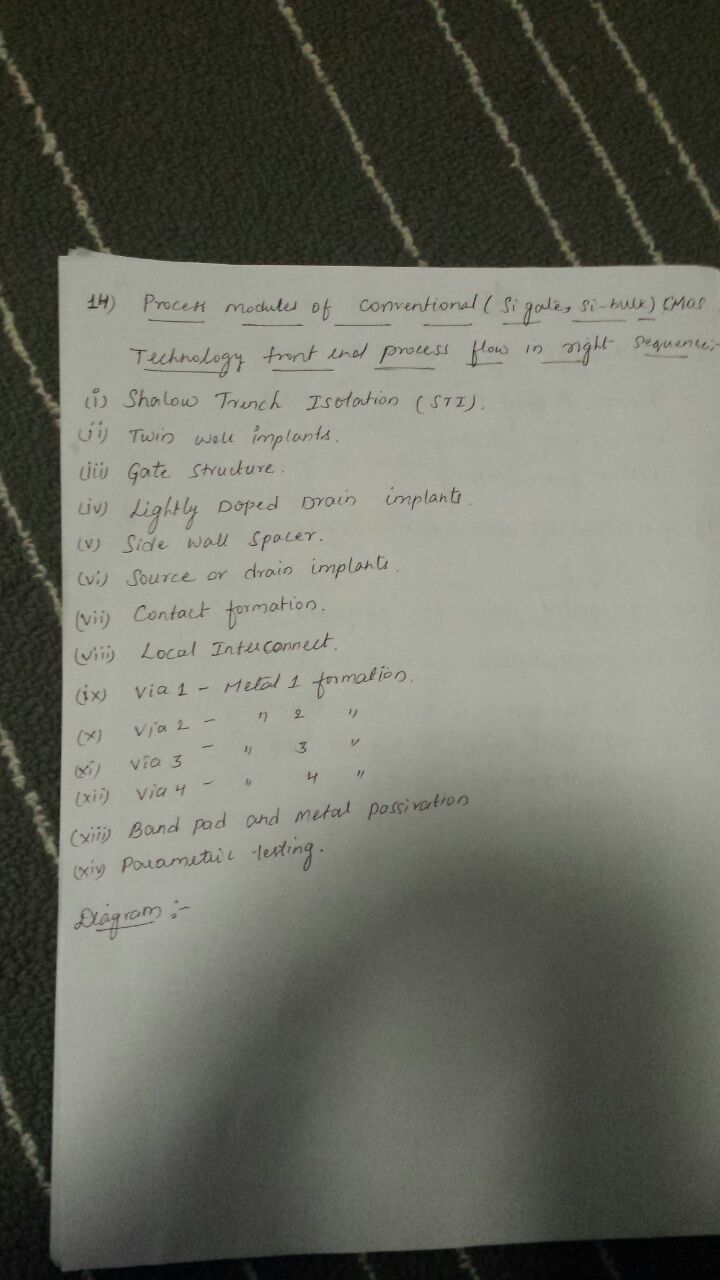 14) Process modules of conventional ( Si gate, Si-bulk) CMOS
Technology front end process flow in right sequence:-
(i) Shalow Trench Isolation (STI).
(ii) Twin well implants.
(iii) Gate structure.
(iv) Lightly Doped Drain implants.
(v) Side wall spacer.
(vi) Source or drain implants.
(vii) Contact formation.
(viii) Local Interconnect.
(ix) Via 1 - Metal 1 formation.
(x) Via 2 - " 2 "
(xi) Via 3 - " 3 "
(xii) Via 4 - " 4 "
(xiii) Band pad and metal passivation
(xiv) Parametric testing.
Diagram :-